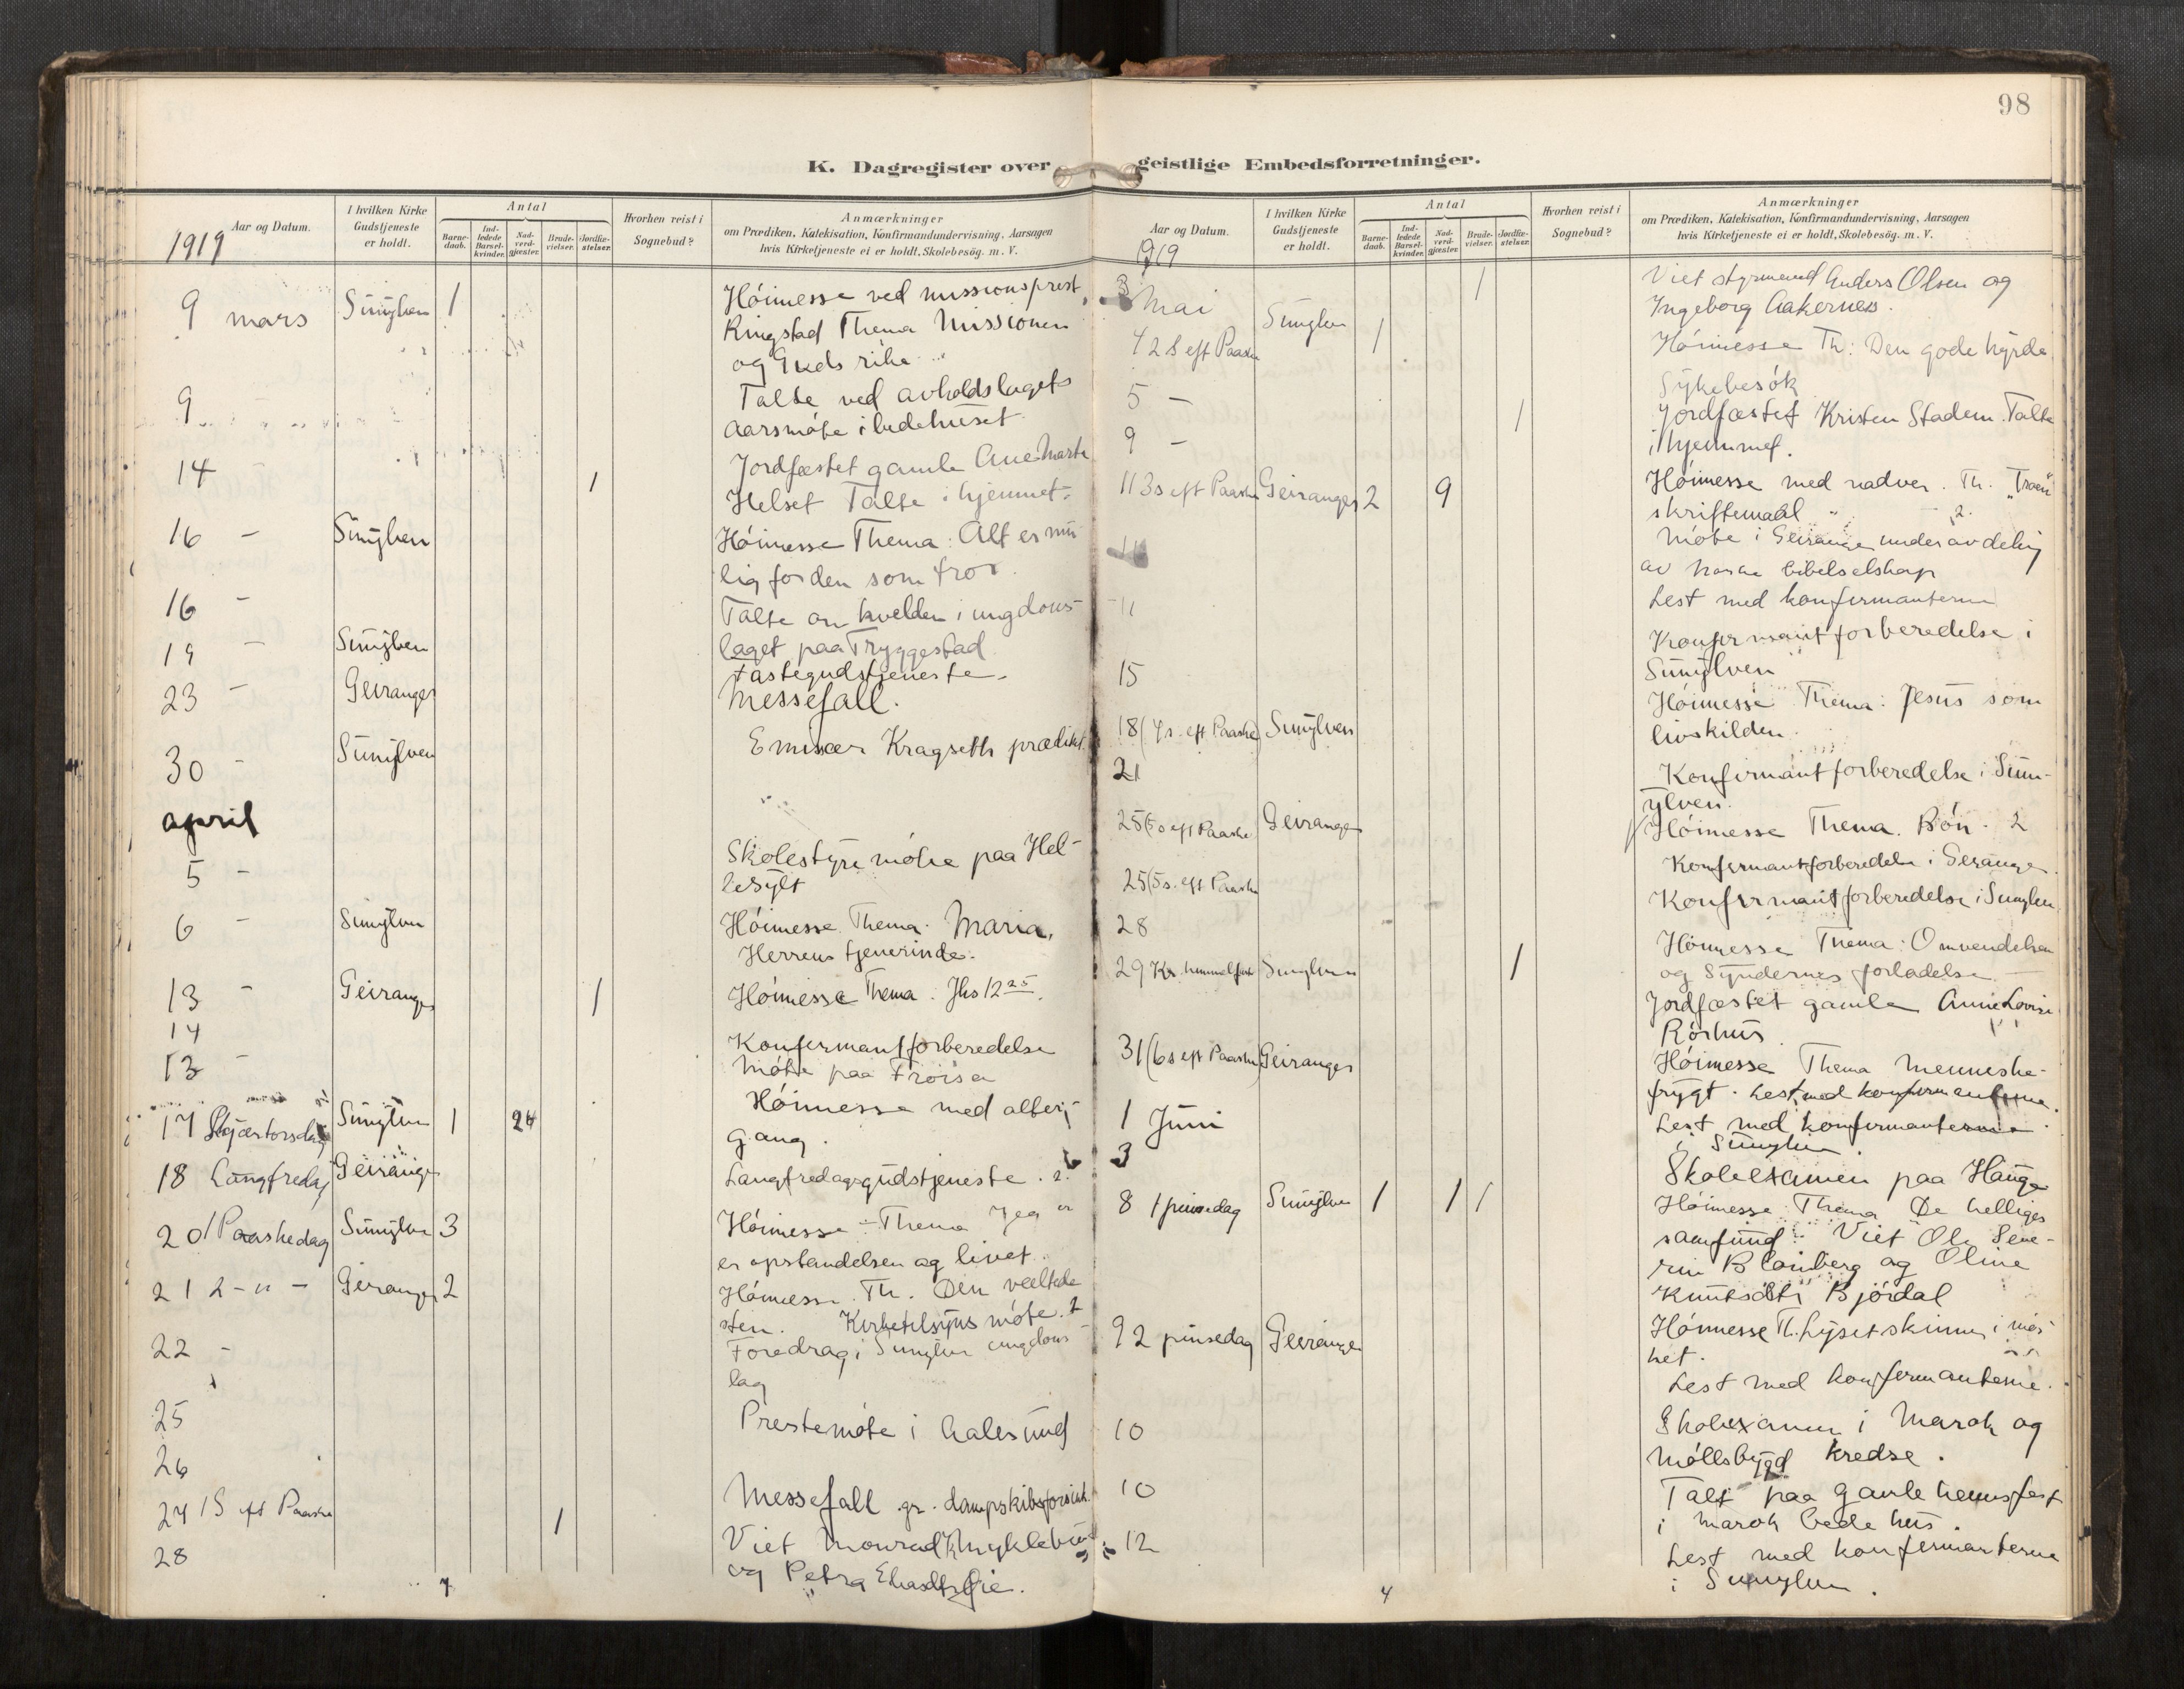 98
K. Dagregister over geistlige Embedsforretninger.
Aar og Datum.
1919
I hvilken Kirke Gudstjeneste er holdt.
Antal
Barne-daab.
Ind-ledede Barsel-kvinder.
Nad-verd-gjæster.
Brude-vielser.
Jordfæ-stelser.
Hvorhen reist i Sognebud?
Anmærkninger
om Prædiken, Katekisation, Konfirmandundervisning, Aarsagen
hvis Kirketjeneste ei er holdt, Skolebesög. m. V.
9 mars Sunylven 1 Höimesse ved missionsprest
Ringstad Thema Missionen
og Guds rike
9 Talte ved avholdslagets
aarsmöte i bedehuset
14 1 Jordfæstet gamle Ane Marte
Helset Talte i hjemmet.
16 - Sunylven Höimesse Thema: Alt er mu
lig for den som tror.
16 - Talte om kvelden i ungdoms-
laget paa Tryggestad
19 - Sunylven Fastegudstjeneste.
23 - Geiranger Messefall.
30 - Sunylven Emissær Kragseth prædiket
april
5 - Skolestyremöte paa Hel-
lesylt
6 - Sunylven Höimesse Thema: Maria,
Herrens tjenerinde.
13 - Geiranger 1 Höimesse Thema: Jhs 12 25.
14 Konfirmantforberedelse
13 - Möte paa
17 Skjærtorsdag Sunylven 1 24 Höimesse med alter-
gang.
18 Langfredag Geiranger Langfredagsgudstjeneste. 2.
20 1 Paaskedag Sunylven 3 Höimesse - Thema Jeg
er opstandelsen og livet.
21 2 - " - Geiranger 2 Höimesse. Th. Den væltede
sten. Kirketilsyns möte. 2
22 - Foredrag i Sunylven ungdoms-
lag
25 Prestemöte i Aalesund
26
27 1 S eft Paaske Messefall gr. dampskibsforsink.
28 1 Viet Monrad K Myklebust
og Petra
7
Aar og Datum.
1919
I hvilken Kirke Gudstjeneste er holdt.
Antal
Barne-daab.
Ind-ledede Barsel-kvinder.
Nad-verd-gjæster.
Brude-vielser.
Jordfæ-stelser.
Hvorhen reist i Sognebud?
Anmærkninger
om Prædiken, Katekisation, Konfirmandundervisning, Aarsagen
hvis Kirketjeneste ei er holdt, Skolebesög. m. V.
3 Mai 1 Viet styrmand Anders Olsen og
Ingeborg Aakernes.
4 2 S eft Paaske Sunylven 1 Höimesse Th: Den gode hyrde
5 - Sykebesök
9 - 1 Jordfæstet Kristen Stadem. Talte
i hjemmet.
11 3 s eft Paaske Geiranger 2 9 Höimesse med nadver. Th. "Troen"
skriftemaal " 2.
11 Möte i Geiranger underavdeling
av norske bibelselskap
11 Lest med konfirmanterne
15 Konfirmantforberedelse i
Sunylven
18 (4 s. eft Paaske) Sunylven Höimesse Thema: Jesus som
livskilden.
21 Konfirmantforberedelse i Sun-
ylven.
25 (5 s eft Paaske Geiranger Höimesse Thema. Bön. 2
25 (5 s. eft Paaske Konfirmantforberedelse i Geiranger.
28 Konfirmantforberedelse i Sunylven
29 Kr. himmelfart Sunylven 1 Höimesse Thema: Omvendelsen
og Syndernes forladelse
Jordfæstet gamle Anne Lovise
Rörhus.
31 (6 s eft Paaske) Geiranger Höimesse Thema Menneske-
frygt. Lest med konfirmanterne.
1 Juni Lest med konfirmanterne
i Sunylven.
3 Skoleexamen paa Hauge
8 1 pinsedag Sunylven 1 1 1 Höimesse Thema De helliges
samfund. Viet Ole Seve-
rin Blomberg og Oline
Knutsdtr Björdal
9 2 pinsedag Geiranger Höimesse Th. Lyset skinner i mör
ket.
Lest med konfirmanterne.
10 Skoleexamen i Marok og
Möllsbygd kredse.
10 Talt paa gamle hemsfest
i Marok bedehus.
12 Lest med konfirmanterne
i Sunylven.
4